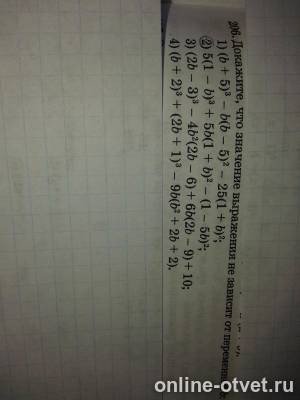 206. Докажите, что значение выражения не зависит от
1) (b + 5)³ − b(b − 5)² − 25(1 + b)²;
2) 5(1 − b)³ + 5b(1 + b)² − (1 − 5b)²;
3) (2b − 3)³ − 4b²(2b − 6) + 6b(2b − 9) + 10;
4) (b + 2)³ + (2b + 1)³ − 9b(b² + 2b + 2).
online-otvet.ru